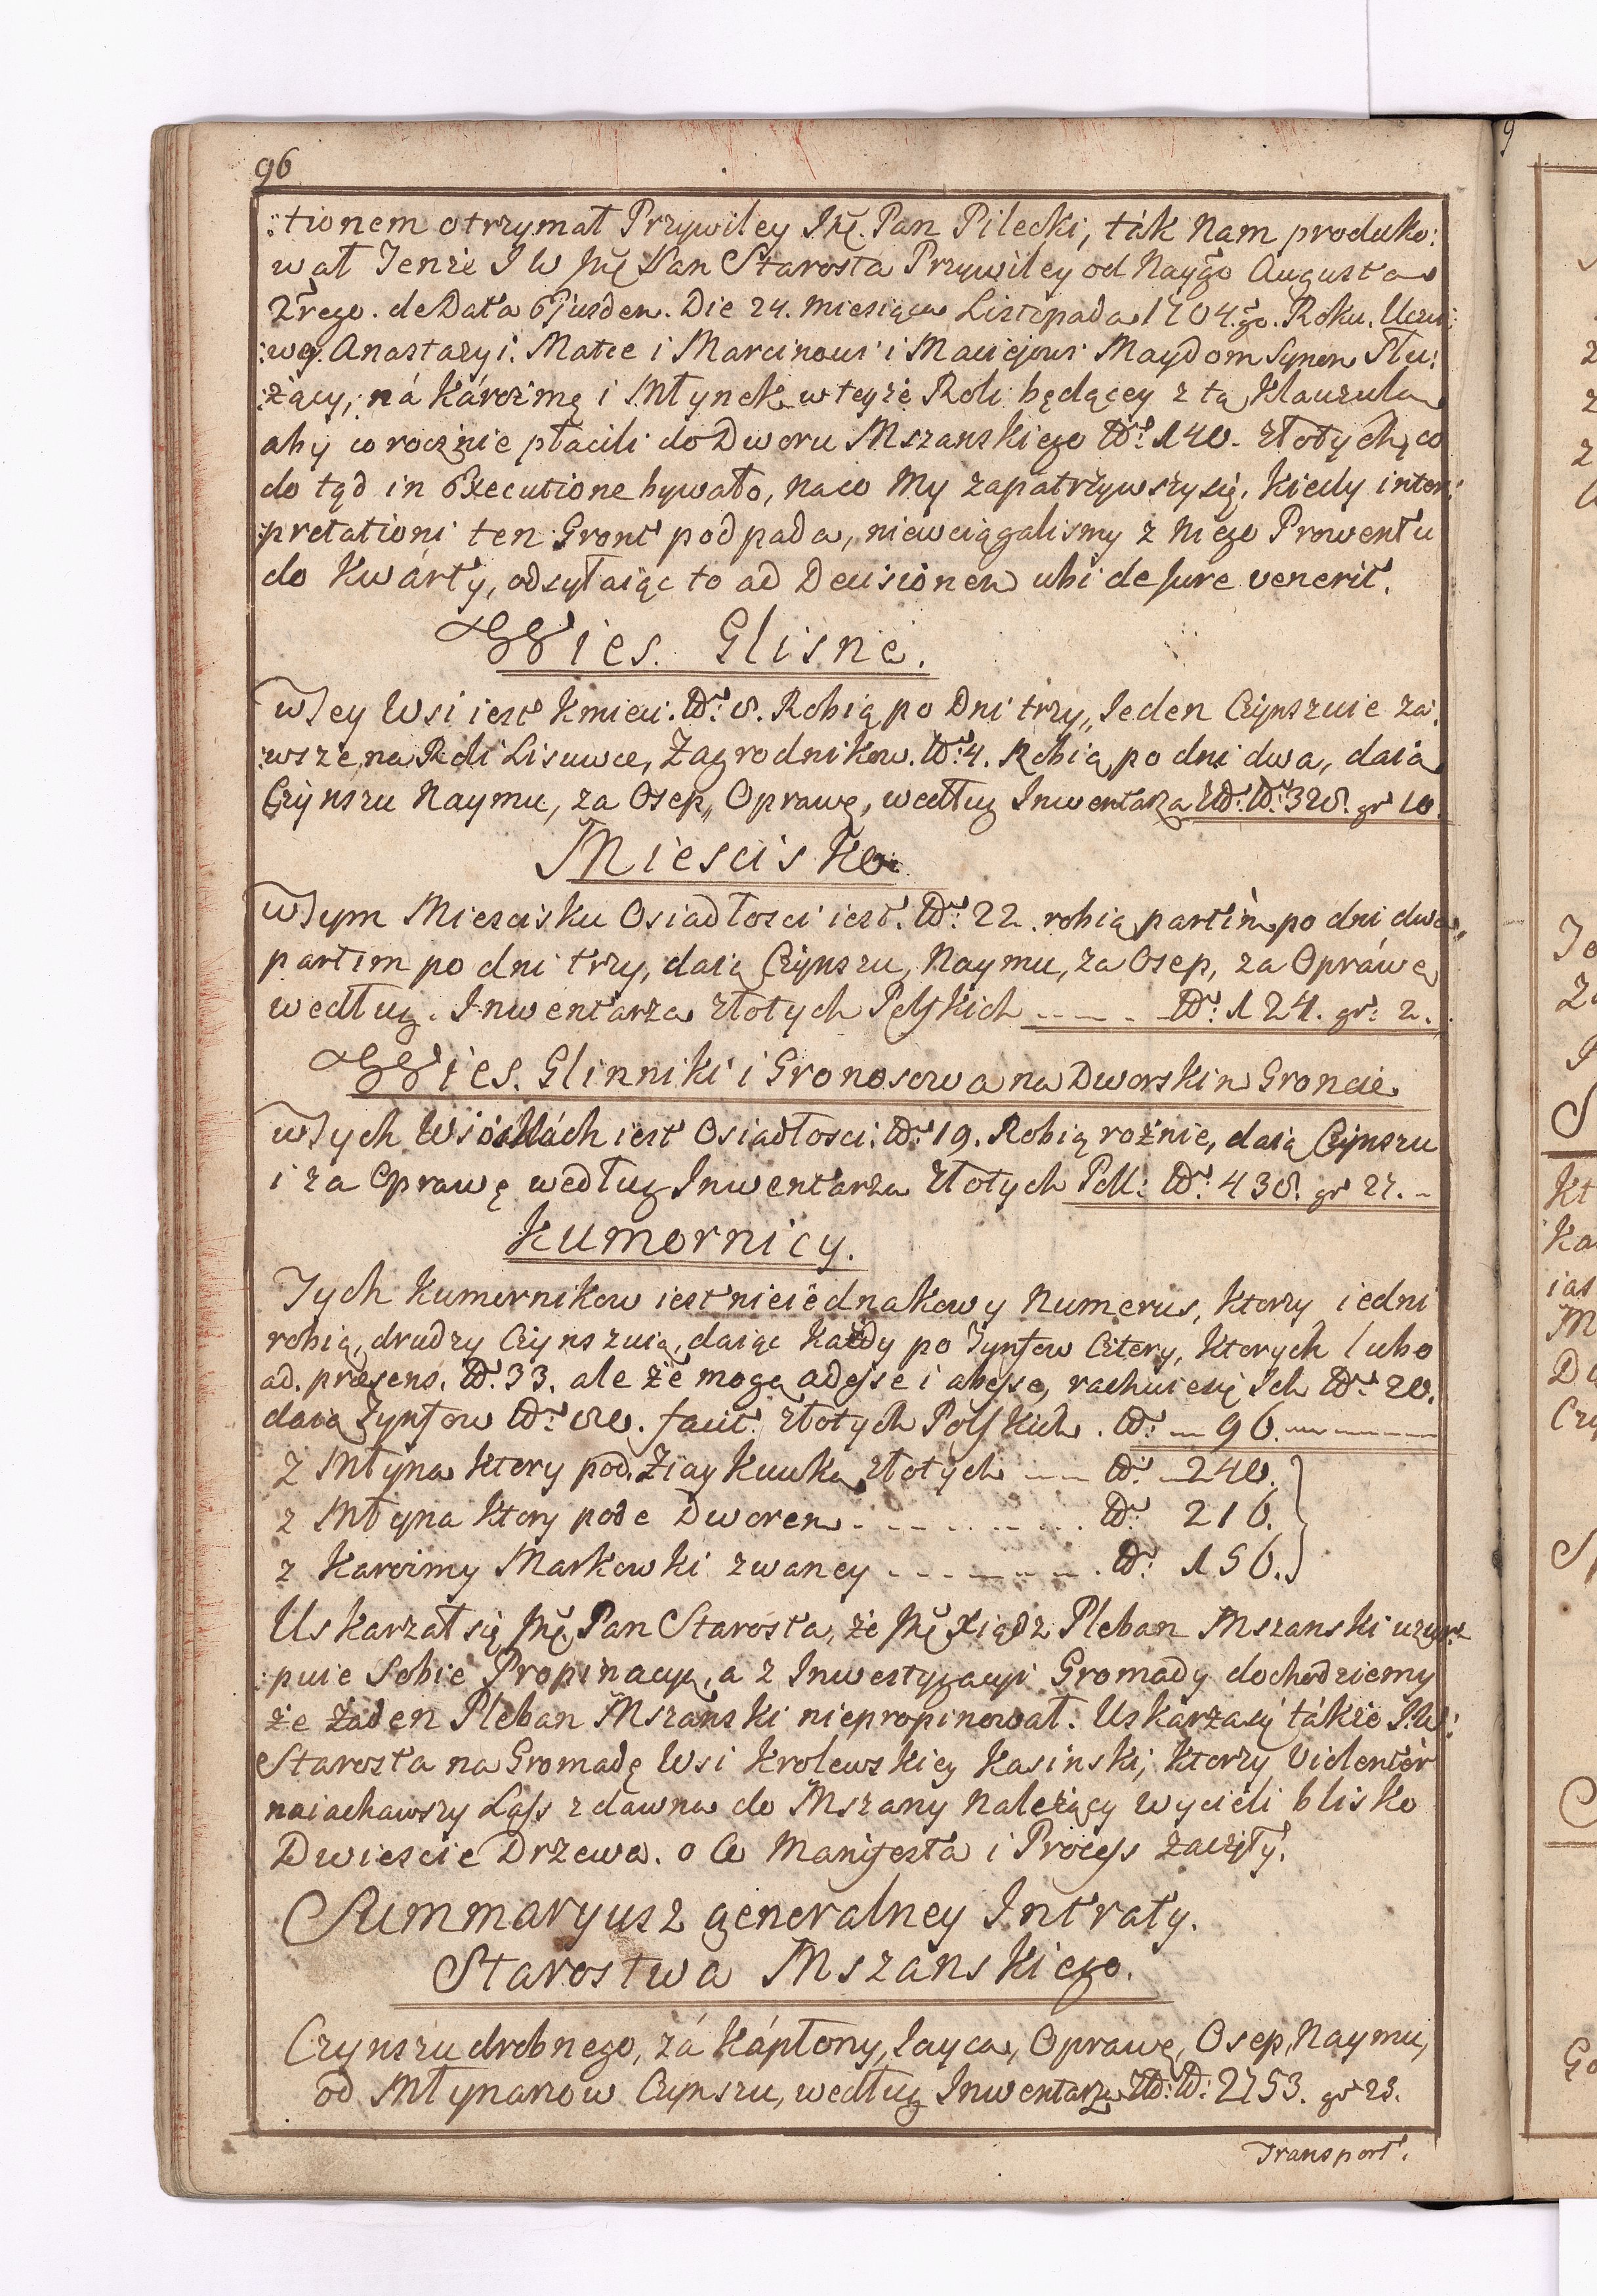 96
:tionem otrzymał Przywiley Jmę. Pan Pilecki, ták Nam produko:
wał Tenże J W Jmę Pan Starosta Przywiley od Naygo Augusta
2rego. de Data Ejusdem. Die 24. Miesiąca Listopada 1704.go. Roku. Uczci:
:wey. Anastazyi. Matce i Marcinowi i Maciejowi Maydom Synom Słu:
:żący, ná Kárczmę i Młynek w teyże Roli będącey z tą Klauzulą
aby corocznie płacili do Dworu Mszanskiego No: 140. złotych, co
do tąd in Executione bywało, naco My zapatrzywszysię, kiedy inter:
:pretationi ten Gront podpada, niewciągalismy z niego Prowentu
do Kwárty, odsyłaiąc to ad Decisionem ubi de Jure venerit.
Wies. Glisne.
W Tey Wsi iest Kmieci. No: 8. Robią po Dni trzy, Jeden Czynszuie za:
:wsze na Roli Lisuwce, Zagrodnikow. No: 4. Robią po dni dwa, daią
Czynszu Naymu, za Osep, Oprawę, według Inwentarza Zł: No: 328. gr 10.
Miescisko.
W Tym Miescisku Osiadłosci iest. No: 22. robią partim po dni dwa,
partim po dni trzy, daią Czynszu, Naymu, za Osep, za Opráwę
według. Inwentarza złotych Polskich ---- . No: 124. gr: 2.
Wies. Glinniki i Gronosowa na Dworskim Groncie
W Tych Wsiołkách iest Osiadłosci: No: 19. Robią rożnie, daią Czynszu
i za Oprawę według Inwentarza złotych Poll: No: 438. gr 27. -
Kumornicy.
Tych Kumornikow iest nieiednakowy Numerus, ktorzy iedni
robią, drudzy Czynszuią, daiąc każdy po Tynfow Cztery, ktorych lubo
ad. præsens. No: 33. ale że mogą odejsc i abejsc, rachuiesię Ich No: 20.
daią Tynfow No: 80. facit. złotych Polskich. No: -- 96. --------
z Młyna ktory pod Ziay Kuwką złotych ---- No: 240.
z Młyna ktory pode Dworem - - - - - - - - . No: 216.
z Karczmy Markowki zwaney - - - - - - - . No: 156.
Uskarzał się Jmę Pan Starosta, że Jmę Xiądz Pleban Mszanski uzur:
:puie Sobie Propinacyą, a z Inwestygacyi Gromady dochodziemy
że żaden Pleban Mszanski niepropinował. Uskarzasię tákże J. W:
Starosta na Gromadę Wsi Krolewskiey Kasinski, ktorzy violenter
naiachawszy Lass zdawna do Mszany Należący wycieli blisko
Dwiescie Drzewa. o Co Manifesta i Process zaczęty.
Summaryusz generalney Intraty.
Starostwa Mszanskiego.
Czynszu drobnego, zá Kápłony, Jayca, Oprawę, Osep, Naymu,
od Młynarzow Czynszu, według Inwentarza Zł: No: 2753. gr 23.
Transport.